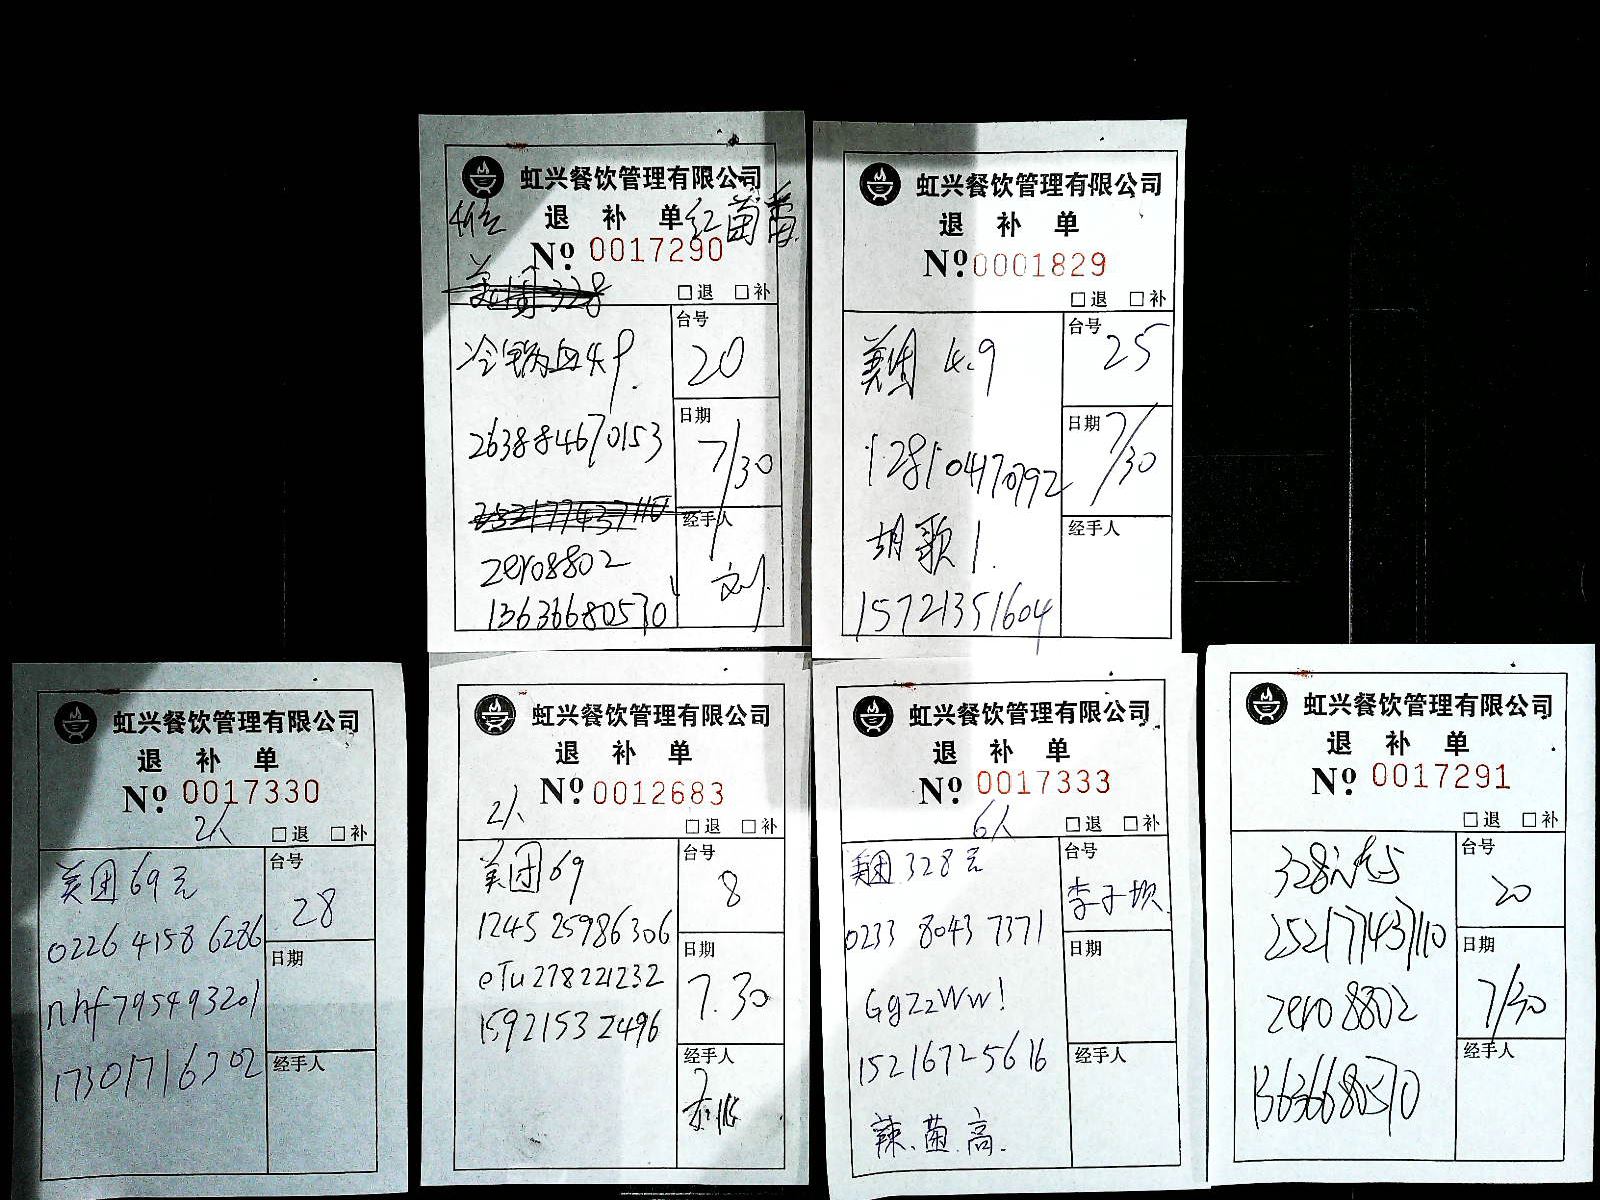 虹兴餐饮管理有限公司
退补单
4位
红菌番
No 0017290
美团328
□退 □补
冷锅血4.9.
台号
20
263884670153
日期
7/30
252177437110
经手人
刘
zero8802
13636680570
虹兴餐饮管理有限公司
退补单
No 0001829
□退 □补
美团 4.9
台号
25
128104170792
日期
7/30
胡歌1.
经手人
15721351604
虹兴餐饮管理有限公司
退补单
No 0017330
2人
□退 □补
美团69元
台号
28
0226 4158 6286
日期
nhf795493201
17301716302
经手人
虹兴餐饮管理有限公司
退补单
No 0012683
2人
□退 □补
美团69
台号
8
1245 25986306
日期
7.30
eTu278221232
15921532496
经手人
虹兴餐饮管理有限公司
退补单
No 0017333
6人
□退 □补
美团 328元
台号
李子坝
0233 8043 7371
日期
GgZzWw!
15216725616
经手人
辣.菌.高.
虹兴餐饮管理有限公司
退补单
No 0017291
□退 □补
328
台号
20
252177437110
日期
7/30
zero8802
经手人
13636680570